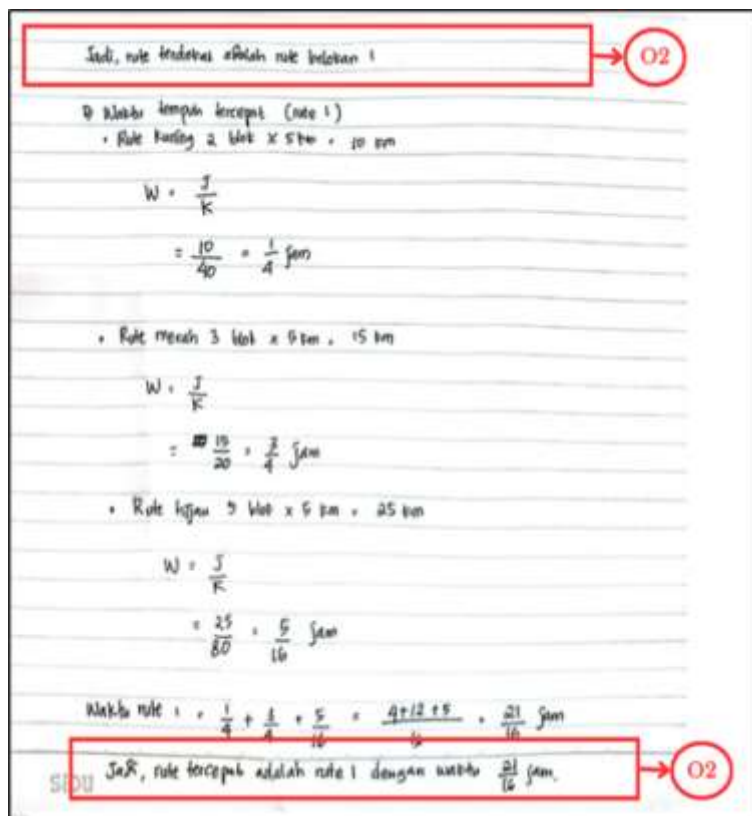 Jadi, rute terdekat adalah rute belokan 1
O2
Waktu tempuh tercepat (rute 1)
• Rute kuning 2 blok x 5 km = 10 km
W = J/K
= 10/40 = 1/4 jam
• Rute merah 3 blok x 5 km = 15 km
W = J/K
= 15/20 = 3/4 jam
• Rute hijau 5 blok x 5 km = 25 km
W = J/K
= 25/80 = 5/16 jam
Waktu rute 1 = 1/4 + 3/4 + 5/16 = 4+12+5/16 = 21/16 jam
Jadi, rute tercepat adalah rute 1 dengan waktu 21/16 jam.
O2